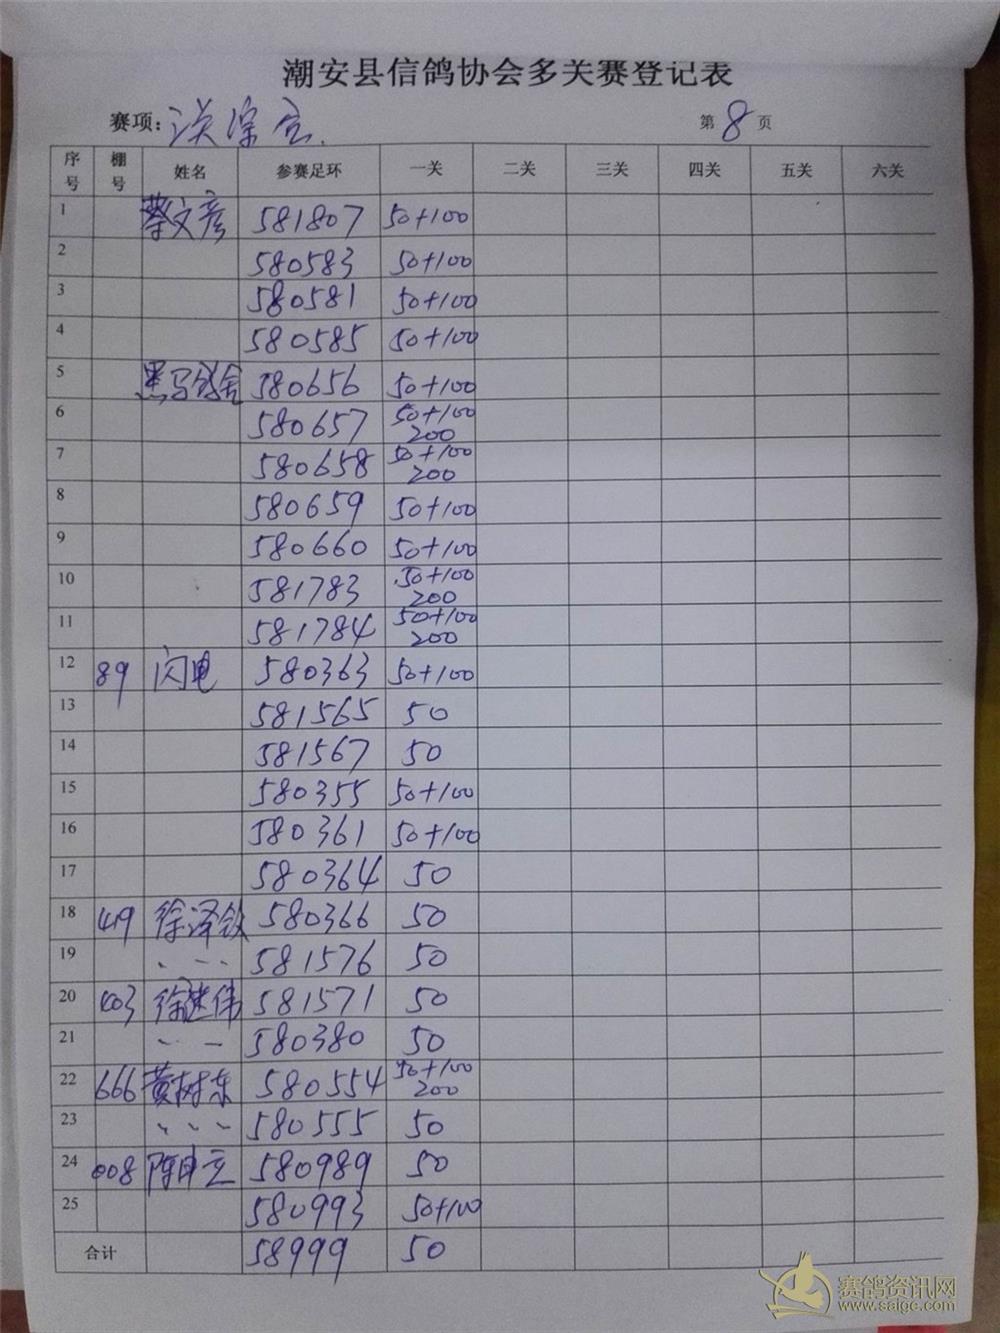 潮安县信鸽协会多关赛登记表
赛项: 第 8 页
序号 棚号 姓名 参赛足环 一关 二关 三关 四关 五关 六关
1 蔡文彦 581807 50+100
2 580583 50+100
3 580581 50+100
4 580585 50+100
5 黑马鸽舍 580656 50+100
6 580657 50+100 200
7 580658 50+100 200
8 580659 50+100
9 580660 50+100
10 581783 50+100 200
11 581784 50+100 200
12 89 闪电 580363 50+100
13 581565 50
14 581567 50
15 580355 50+100
16 580361 50+100
17 580364 50
18 419 徐泽钦 580366 50
19 、、、 581576 50
20 403 徐继伟 581571 50
21 580380 50
22 666 黄树东 580554 50+100 200
23 、、、 580555 50
24 008 580989 50
25 580993 50+100
合计 58999 50
赛鸽资讯网
www.saigc.com